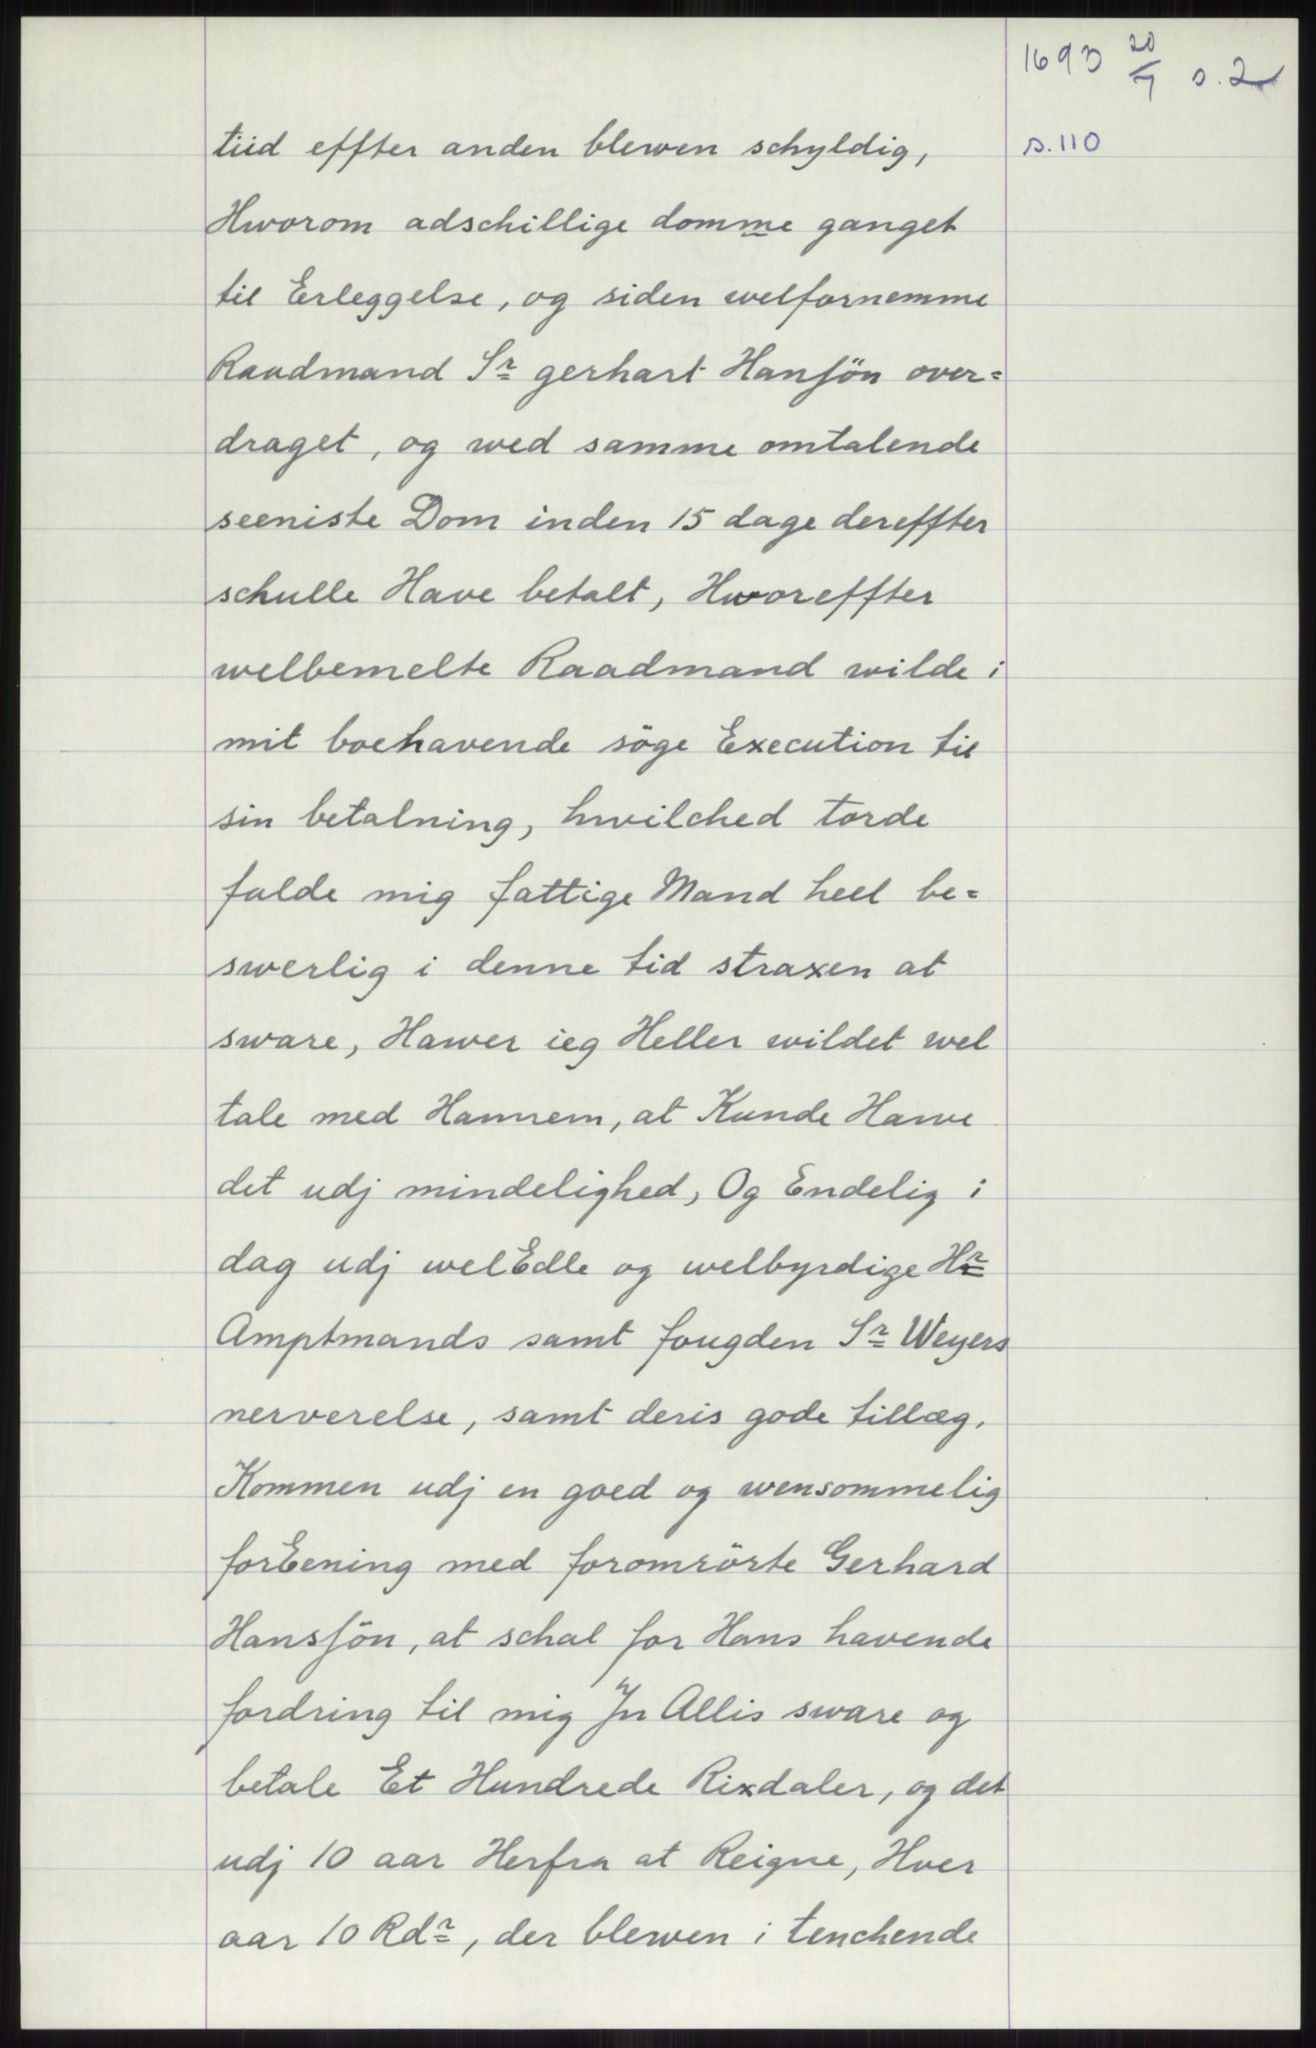 1693 20/7 s. 2
s. 110
tiid effter anden blewen schyldig,
Hworom adschillige domme ganget
til Erleggelse, og siden welfornemme
Raadmand Sr gerhart Hansön over=
draget, og wed samme omtalende
seeniste Dom inden 15 dage dereffter
schulle Have betalt, Hworeffter
welbemelte Raadmand wilde i
mit boehavende söge Execution til
sin betalning, hwilched torde
falde mig fattige Mand heel be=
swerlig i denne tid straxen at
sware, Hawer ieg Heller wildet wel
tale med Hannem, at Kunde Hawe
det udj mindelighed, Og Endelig i
dag udj welEdle og welbyrdige Hr
Amptmands samt fougden Sr Weyers
nerverelse, samt deris gode tillæg,
Kommen udj en goed og wensommelig
forEening med foromrörte Gerhard
Hanssön, at schal for Hans havende
fordring til mig Jn Allis sware og
betale Et Hundrede Rixdaler, og det
udj 10 aar Herfra at Reigne, Hver
aar 10 Rdr, der blewen i tenchende